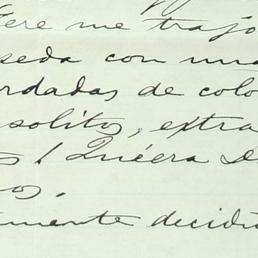 tere me trajo
seda con una
rdadas de colo
solitos, extra
s! Quiera D
os.
mente decidi